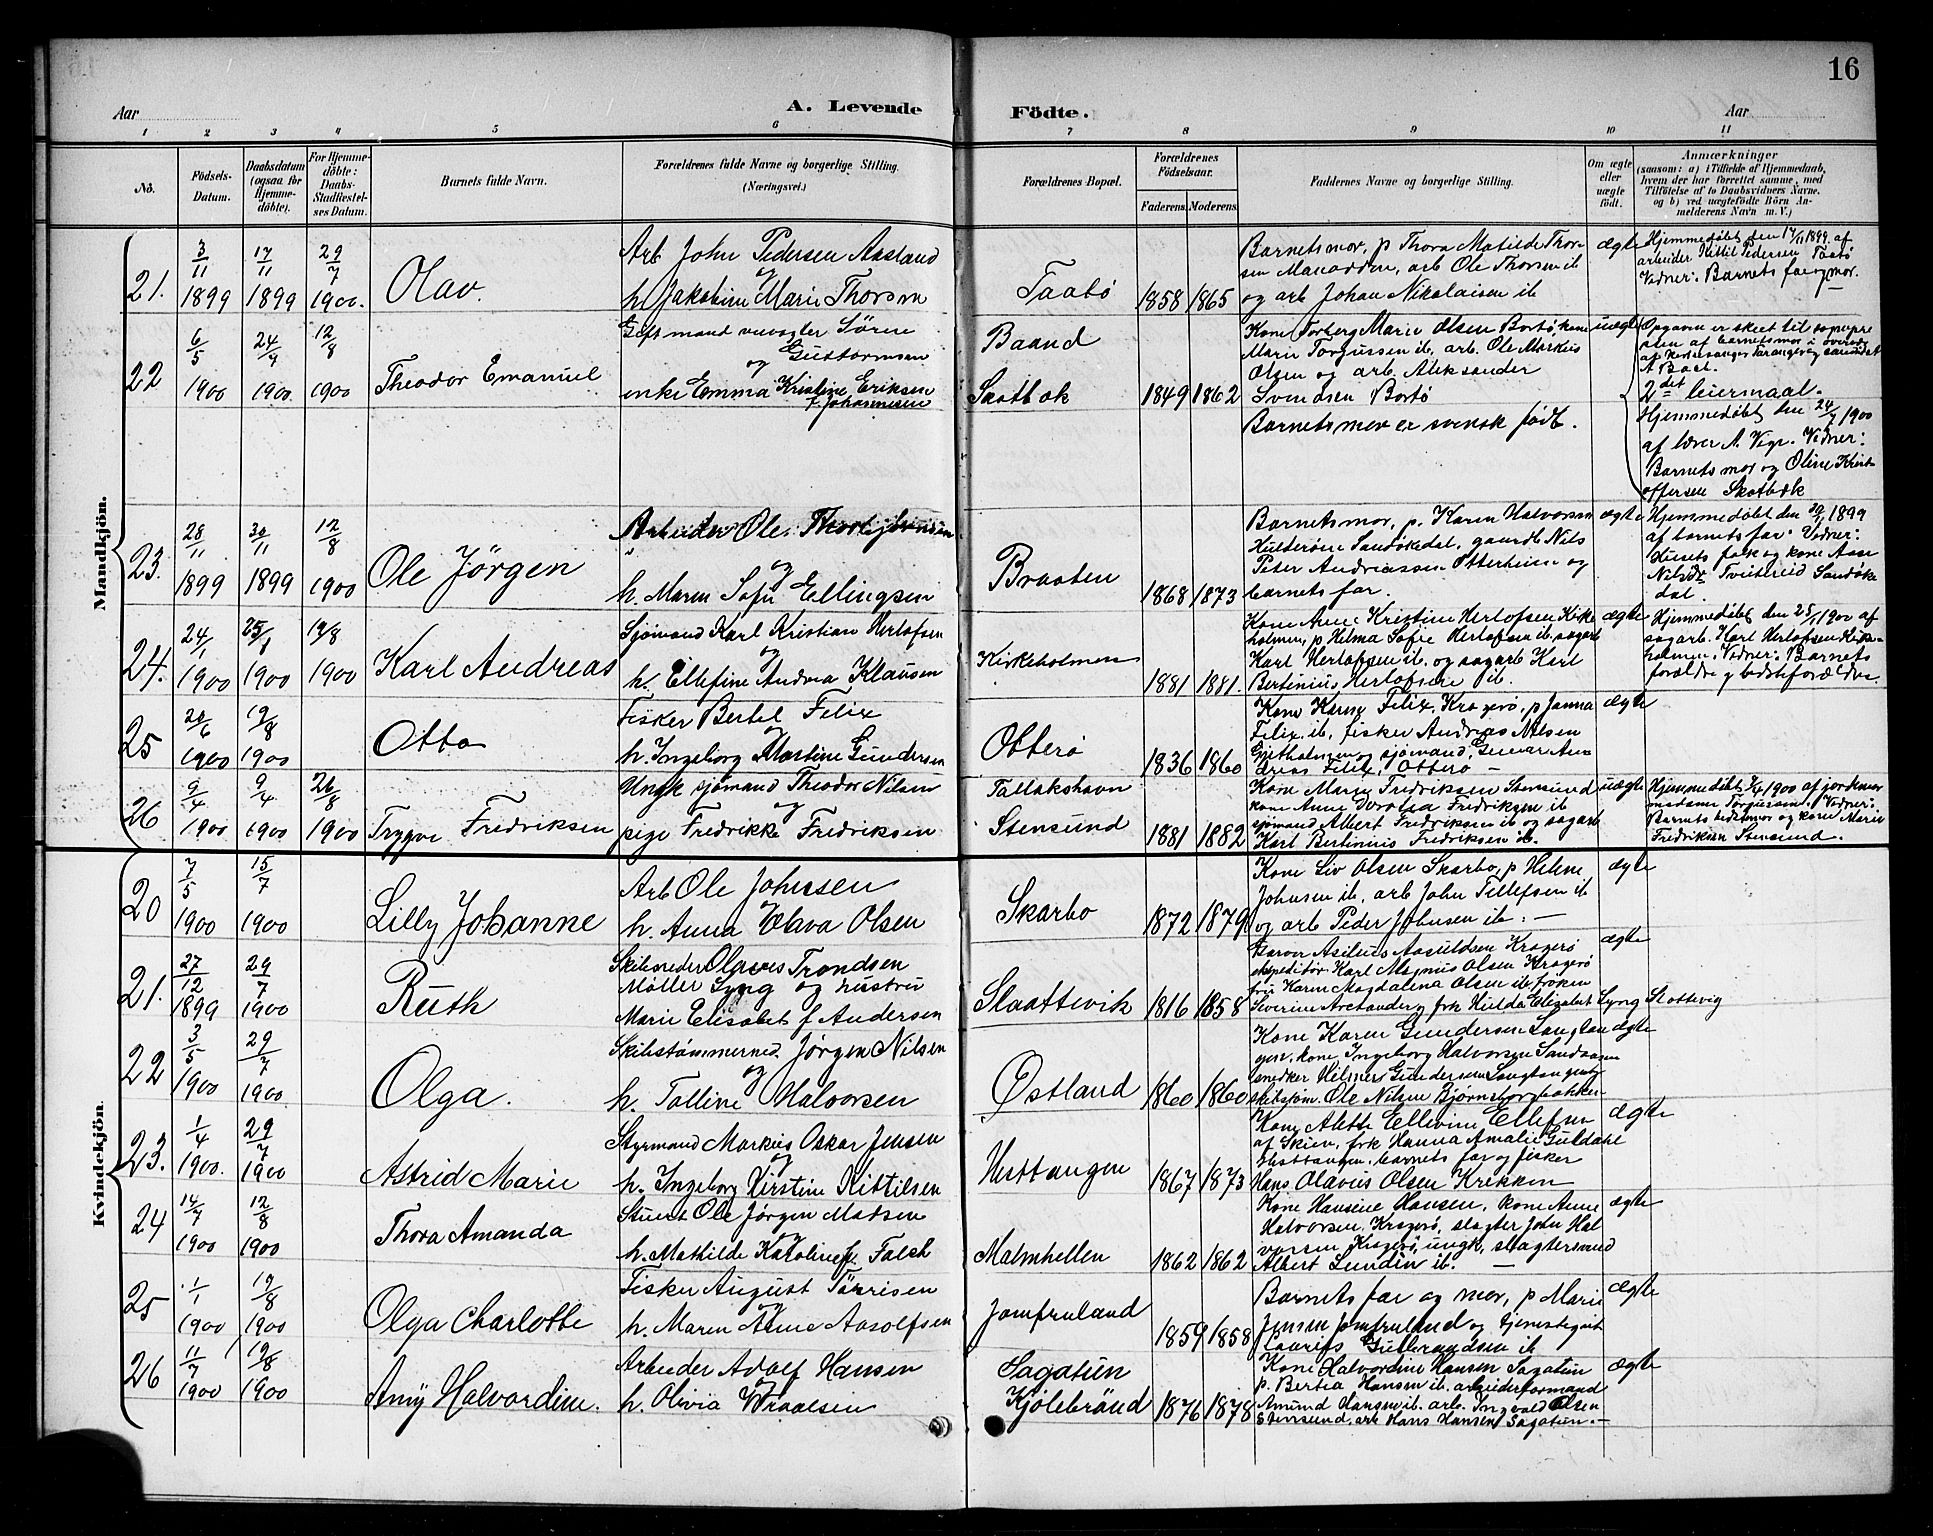 16
Aar
A. Levende
Födte.
Aar
1 2 3 4 5 6 7 8 9 10 11
No. Födsels-Datum. Daabsdatum (ogsaa for Hjemme-döbte). For Hjemme-döbte: Daabs-Stadfæstel-ses Datum. Barnets fulde Navn. Forældrenes fulde Navne og borgerlige Stilling. (Næringsvei.) Forældrenes Bopæl. Forældrenes Födselsaar. Faderens. Moderens. Faddernes Navne og borgerlige Stilling. Om ægte eller uægte födt. Anmærkninger
(saasom: a) i Tilfælde af Hjemmedaab, hvem der har forrettet samme, med Tilföielse af to Daabsvidners Navne, og b) ved uægtefödte Börn An-melderens Navn m. V.)
Mandkjön.
21. 3/11 1899 17/11 1899 29/7 1900. Olav.
Arb John Pedersen Aasland
og
h. Jakobine Marie Thorsen
Taatø 1858 1865
Barnets mor, p Thora Matilde Thor
sen , arb Ole Thorsen ib
og arb Johan Nikolaisen ib
ægte
Hjemmedøbt den 17/11 1899. af
arbeider Kittil Pedersen Taatø
Vidner: Barnets far og mor.
22 6/5 1900 24/7 1900. 12/8 1900 Theodor Emanuel
Gift mand Sören
og Guttormsen
enke Emma Kristine Eriksen
f. Johannesen
Baand
Skotbæk 1849 1862
Kone Torberg Marie Olsen Bortø kone
Marie Torgussen ib, arb. Ole Markus
Olsen og arb. Aleksander
Svendsen Bortø
Barnets mor er svensk født.
uægte
Opgaven er skeet til sognepre
sten af barnets mor
A Base.
2det leiermaal.
Hjemmedøbt den 24/7 1900
af lærer A. Vegr. Vidner:
Barnets mor og Oline Krist
offersen Skotbæk
23. 28/11 1899 30/11 1899 12/8 1900 Ole Jörgen
Arbeider Ole Thorbjörnsen
og
h. Maren Sofie Ellingsen
Braaten 1868 1873
Barnets mor, p. Karen Halvorsen
Sandøkedal, gaardb Nils
Peter Andreassen og
barnets far.
ægte
Hjemmedøbt den 30/11 1899
af barnets far. Vidner:
Husets folk og kone Aase
Nilsdr Tveitereid Sandøke
dal.
24. 24/1 1900 25/1 1900 12/8 1900 Karl Andreas
Sjømand Karl Kristian Herlofsen
og
h. Ellefine Andrea Klausen
Kirkeholmen 1881 1881.
Kone Anne Kristine Herlofsen Kirke
holmen, p Helma Sofie Herlofsen ib, sagarb
Karl Herlofsen ib. og sagarb Karl
Bertinius Herlofsen ib.
ægte
Hjemmedøbt den 25/1 1900 af
sagarb. Karl Herlofsen Kirke-
holmen. Vidner: Barnets
forældre og bedsteforældre.
25 20/6 1900 12/8 1900 Otto
Fisker Bertel Felix
og
h. Ingeborg Martine Gundersen
Otterø 1836 1860
Kone Karen Felix, Kragerø, p Janna
Felix ib, fisker Andreas Nilsen
Gjetholmen og sjømand Gunvar An
dreas Felix, Otterø
ægte
26 9/4 1900 9/4 1900 26/8 1900 Trygve Fredriksen
Ungk sjömand Theodor Nilsen
og
pige Fredrikke Fredriksen
Tallakshavn
Stensund 1881 1882
Kone Marie Fredriksen Stensund
kone Anne Dorotea Fredriksen ib
sjømand Albert Fredriksen ib og sagarb
Karl Bertinius Fredriksen ib.
uægte
Hjemmedøbt 9/4 1900 af jordemor
madame Torgussen. Vidner:
Barnets bedstemor og kone Marie
Fredriksen Stensund.
Kvindekjön.
20 7/5 1900 15/7 1900 Lilly Johanne
Arb Ole Johnsen
og
h. Anna Olava Olsen
Skarbo 1872 1879
Kone Liv Olsen Skarbo, p Helene
Johnsen ib, arb John Tellefsen ib
og arb Peder Johnsen ib.
ægte
21. 27/12 1899 29/7 1900 Ruth
Skibsreder Olaves Trondsen
Møller Lyng og hustru
Marie Elisabet f. Andersen
Slaattevik 1816 1858
Garver Asilius Aasuldsen Kragerø
ekspeditör Karl Magnus Olsen Kragerø
frü Karen Magdalena Olsen ib. frøken
Severine og frk Hulda Elisabet Lyng Slottevig
ægte
22 3/5 1900 29/7 1900 Olga.
Skibstømmermd. Jörgen Nilsen
og
h. Talline Halvorsen
Østland 1860 1860
Kone Karen Gundersen Langtan
gen, kone Ingeborg Halvorsen Sandaasen
snedker Hilmer Gundersen Langtangen og
skibstøm. Ole Nilsen Bjørnsborgbakken
ægte
23. 1/4 1900. 29/7 1900 Astrid Marie
Styrmand Markus Oskar Jensen
og
h. Ingeborg Kirstine Kittilsen
Hesttangen 1867 1873
Kone Alette Ellevine Ellefsen
af Skien, frk Hanna Amalie Guldahl
Hesttangen, barnets far og fisker
Hans Olavus Olsen Krikken
ægte
24 14/7 1900 12/8 1900 Thora Amanda
Stuert Ole Jörgen Madsen
og
h. Mathilde Karoline f. Falch
Malmhellen 1862 1862
Kone Hansine Hansen, kone Anne
Halvorsen Kragerø, slagter John Hal
vorsen Kragerø, ungk, slagtersvend
Albert Lundin ib.
ægte
25 1/1 1900 12/8 1900 Olga Charlotte
Fisker August Törrisen
og
h. Maren Anne Aasolfsen
Jomfruland 1859 1858
Barnets far og mor, p Marie
Jensen Jomfruland og tjenestegut
Laurits Gulbrandsen ib
ægte
26 11/7 1900 12/8 1900 Amy Halvordine.
Arbeider Adolf Hansen
og
h. Olivia Wraalsen
Sagatün
Kjølebrönd 1876 1878
Kone Halvordine Hansen Sagatün
p. Bertea Hansen ib. arbeiderformand
Amund Hansen ib. arb. Ingvald Olsen
Stensund, arb Hans Hansen Sagatün.
ægte